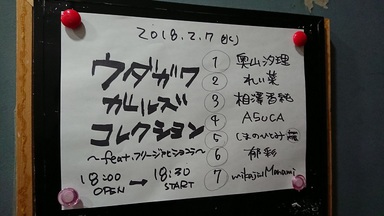 2018.2.7 (水)
ウダガワ
ガールズ
コレクション
～feat.フリージャビョンコラ～
18:00 OPEN → 18:30 START
① 奥山汐理
② れい菜
③ 相澤香純
④ ASUCA
⑤ しまのひとみ
⑥ 郁彩
⑦ mikaju Manami